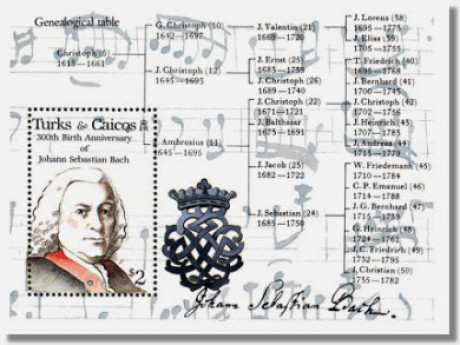 Genealogical table
Christoph (5)
1613 — 1661
G. Christoph (10)
1642 — 1697
J. Christoph (12)
1645 — 1693
Ambrosius (11)
1645 — 1695
J. Valentin (21)
1669 — 1720
J. Ernst (25)
1685 — 1739
J. Christoph (26)
1689 — 1740
J. Christoph (22)
1671 — 1721
J. Balthasar
1673 — 1691
J. Jacob (23)
1682 — 1722
J. Sebastian (24)
1685 — 1750
J. Lorenz (38)
1695 — 1773
J. Elias (39)
1705 — 1755
T. Friedrich (40)
1695 — 1768
J. Bernhard (41)
1700 — 1743
J. Christoph (42)
1702 — 1756
J. Heinrich (43)
1707 — 1783
J. Andreas (44)
1713 — 1779
W. Friedemann (45)
1710 — 1784
C. P. Emanuel (46)
1714 — 1788
J. G. Bernhard (47)
1715 — 1739
G. Heinrich (48)
1724 — 1763
J. C. Friedrich (49)
1732 — 1795
J. Christian (50)
1735 — 1782
Turks & Caicos
300th Birth Anniversary
of
Johann Sebastian Bach
$2
Johann Sebastian Bach.